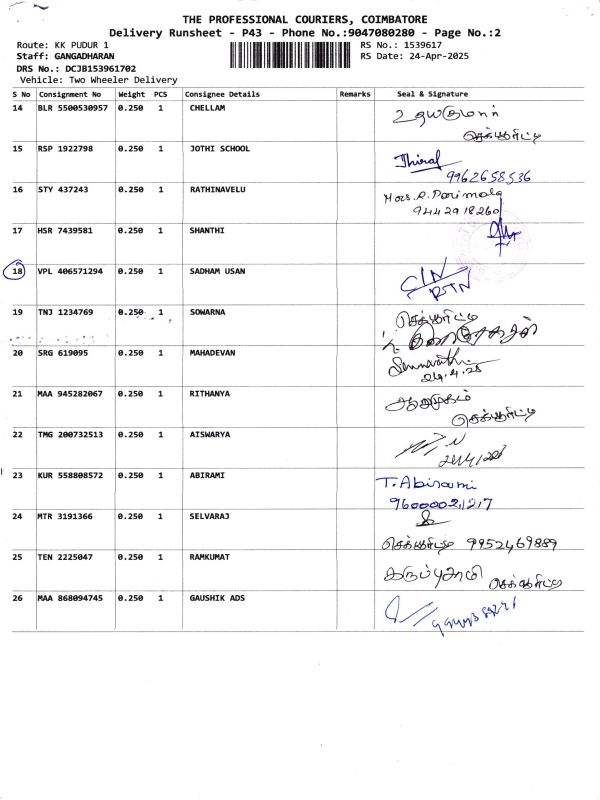 THE PROFESSIONAL COURIERS, COIMBATORE
Delivery Runsheet - P43 - Phone No.:9047080280 - Page No.:2
Route: KK PUDUR 1
RS No.: 1539617
Staff: GANGADHARAN
RS Date: 24-Apr-2025
DRS No.: DCJB153961702
Vehicle: Two Wheeler Delivery
S No Consignment No Weight PCS Consignee Details Remarks Seal & Signature
14 BLR 5500530957 0.250 1 CHELLAM உதயகுமார்
செக்யூரிட்டி
15 RSP 1922798 0.250 1 JOTHI SCHOOL
9962658536
16 STY 437243 0.250 1 RATHINAVELU Mrs. R. Parimala
9442918260
17 HSR 7439581 0.250 1 SHANTHI
18 VPL 406571294 0.250 1 SADHAM USAN C/N
RTN
19 TNJ 1234769 0.250 1 SOWARNA செக்யூரிட்டி
20 SRG 619095 0.250 1 MAHADEVAN
24.4.25
21 MAA 945282067 0.250 1 RITHANYA ஆறுமுகம்
செக்யூரிட்டி
22 TMG 200732513 0.250 1 AISWARYA
23 KUR 558808572 0.250 1 ABIRAMI T. Abirami
96000021217
24 MTR 3191366 0.250 1 SELVARAJ
செக்யூரிட்டி 9952469889
25 TEN 2225047 0.250 1 RAMKUMAT கருப்புசாமி செக்யூரிட்டி
26 MAA 868094745 0.250 1 GAUSHIK ADS